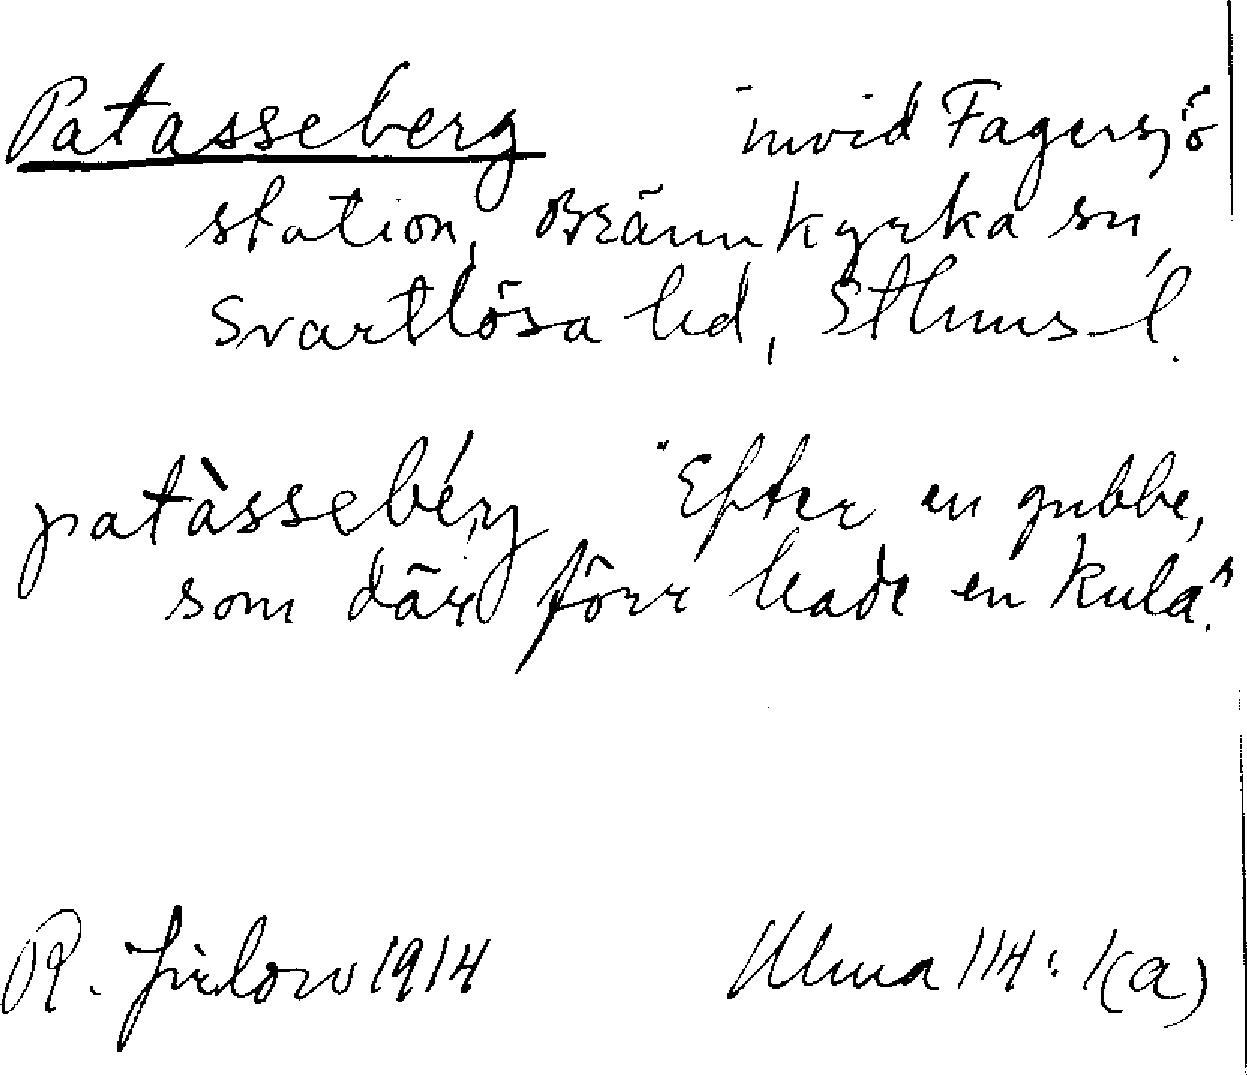 Patasseberg invid Fagersjö
station, Brännkyrka sn,
Svartlösa hd, Sthms l.
patàssebérj "Efter en gubbe,
som där förr hade en kula".
R. Jirlow 1914 Ulma 114:1(a)